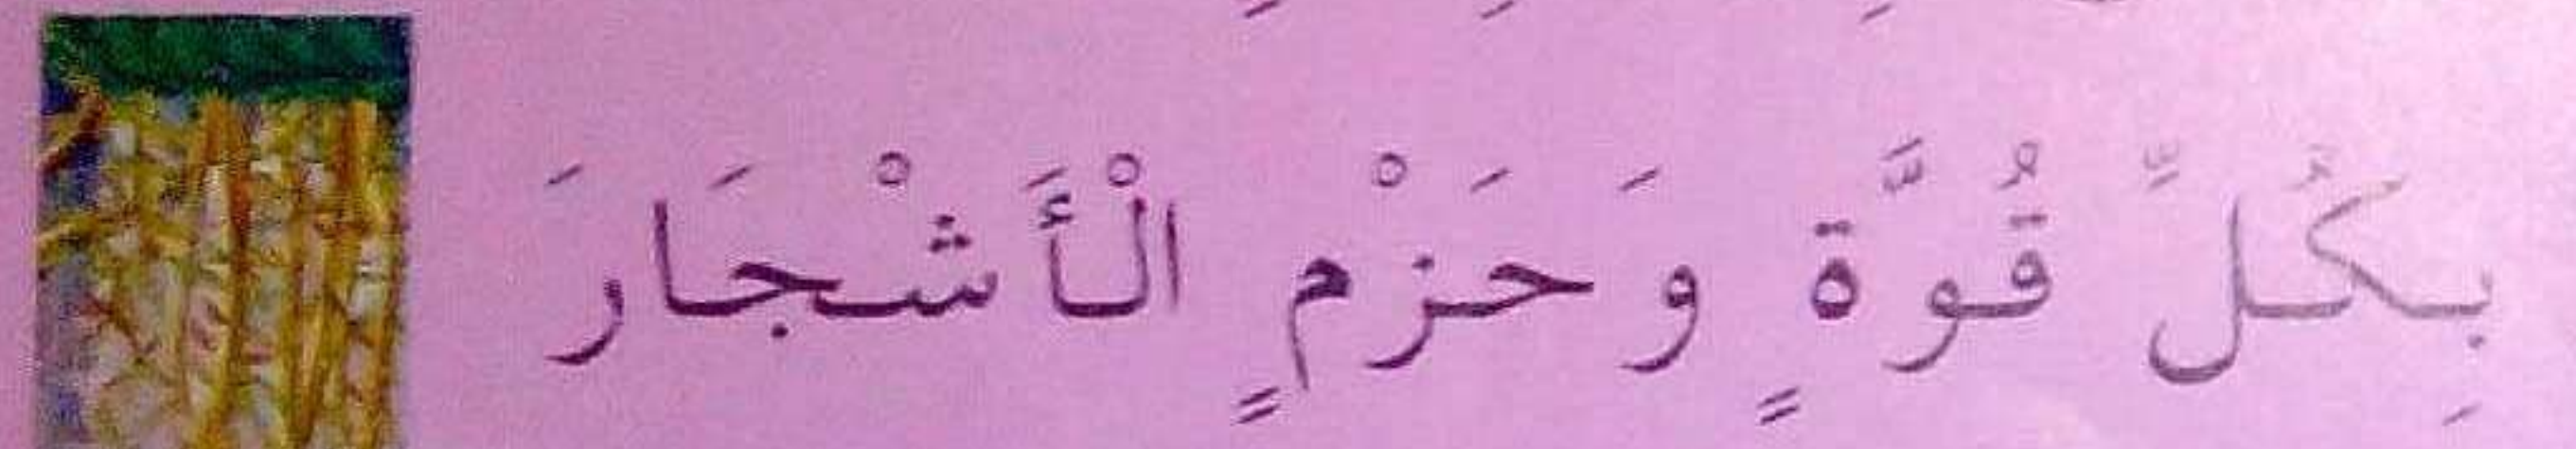 بِكُلِّ قُوَّةٍ وَحَزْمٍ الْأَشْجَارَ